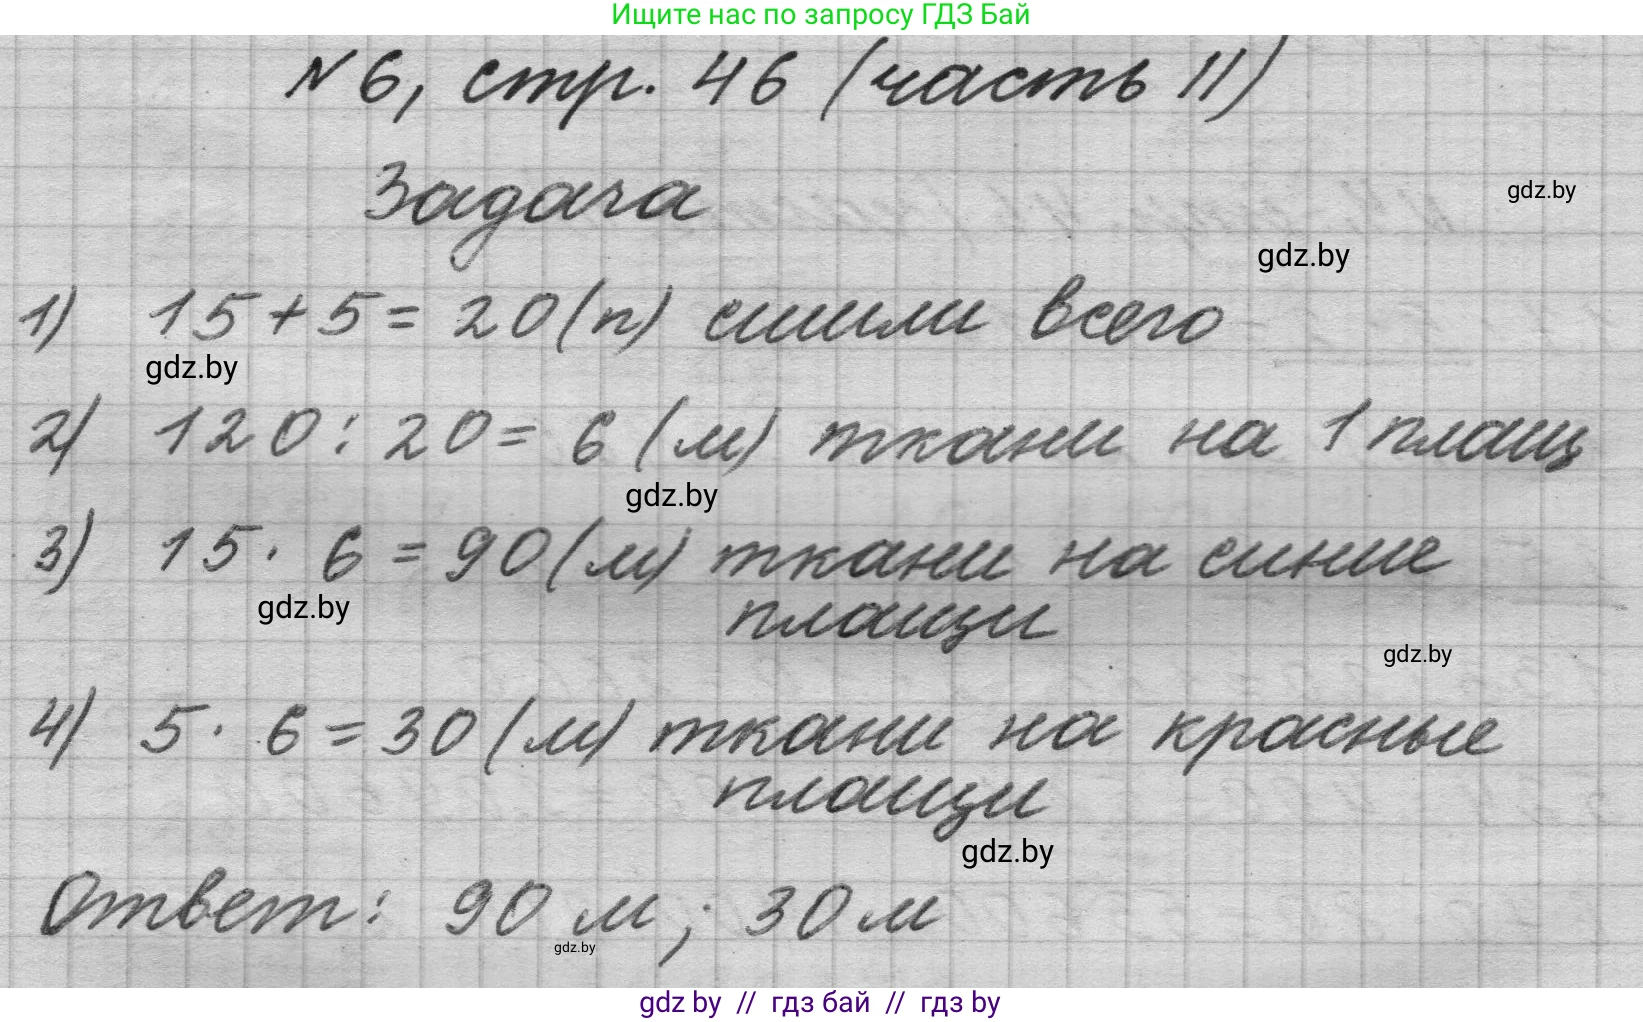 Ищите нас по запросу ГДЗ Бай
№ 6, стр. 46 (часть II)
Задача
gdz.by
gdz.by
1) 15 + 5 = 20 (п) сшили всего
gdz.by
2) 120 : 20 = 6 (м) ткани на 1 плащ
gdz.by
3) 15 · 6 = 90 (м) ткани на синие
плащи
gdz.by
gdz.by
4) 5 · 6 = 30 (м) ткани на красные
плащи
gdz.by
Ответ: 90 м ; 30 м
gdz.by
gdz by // гдз бай // гдз by